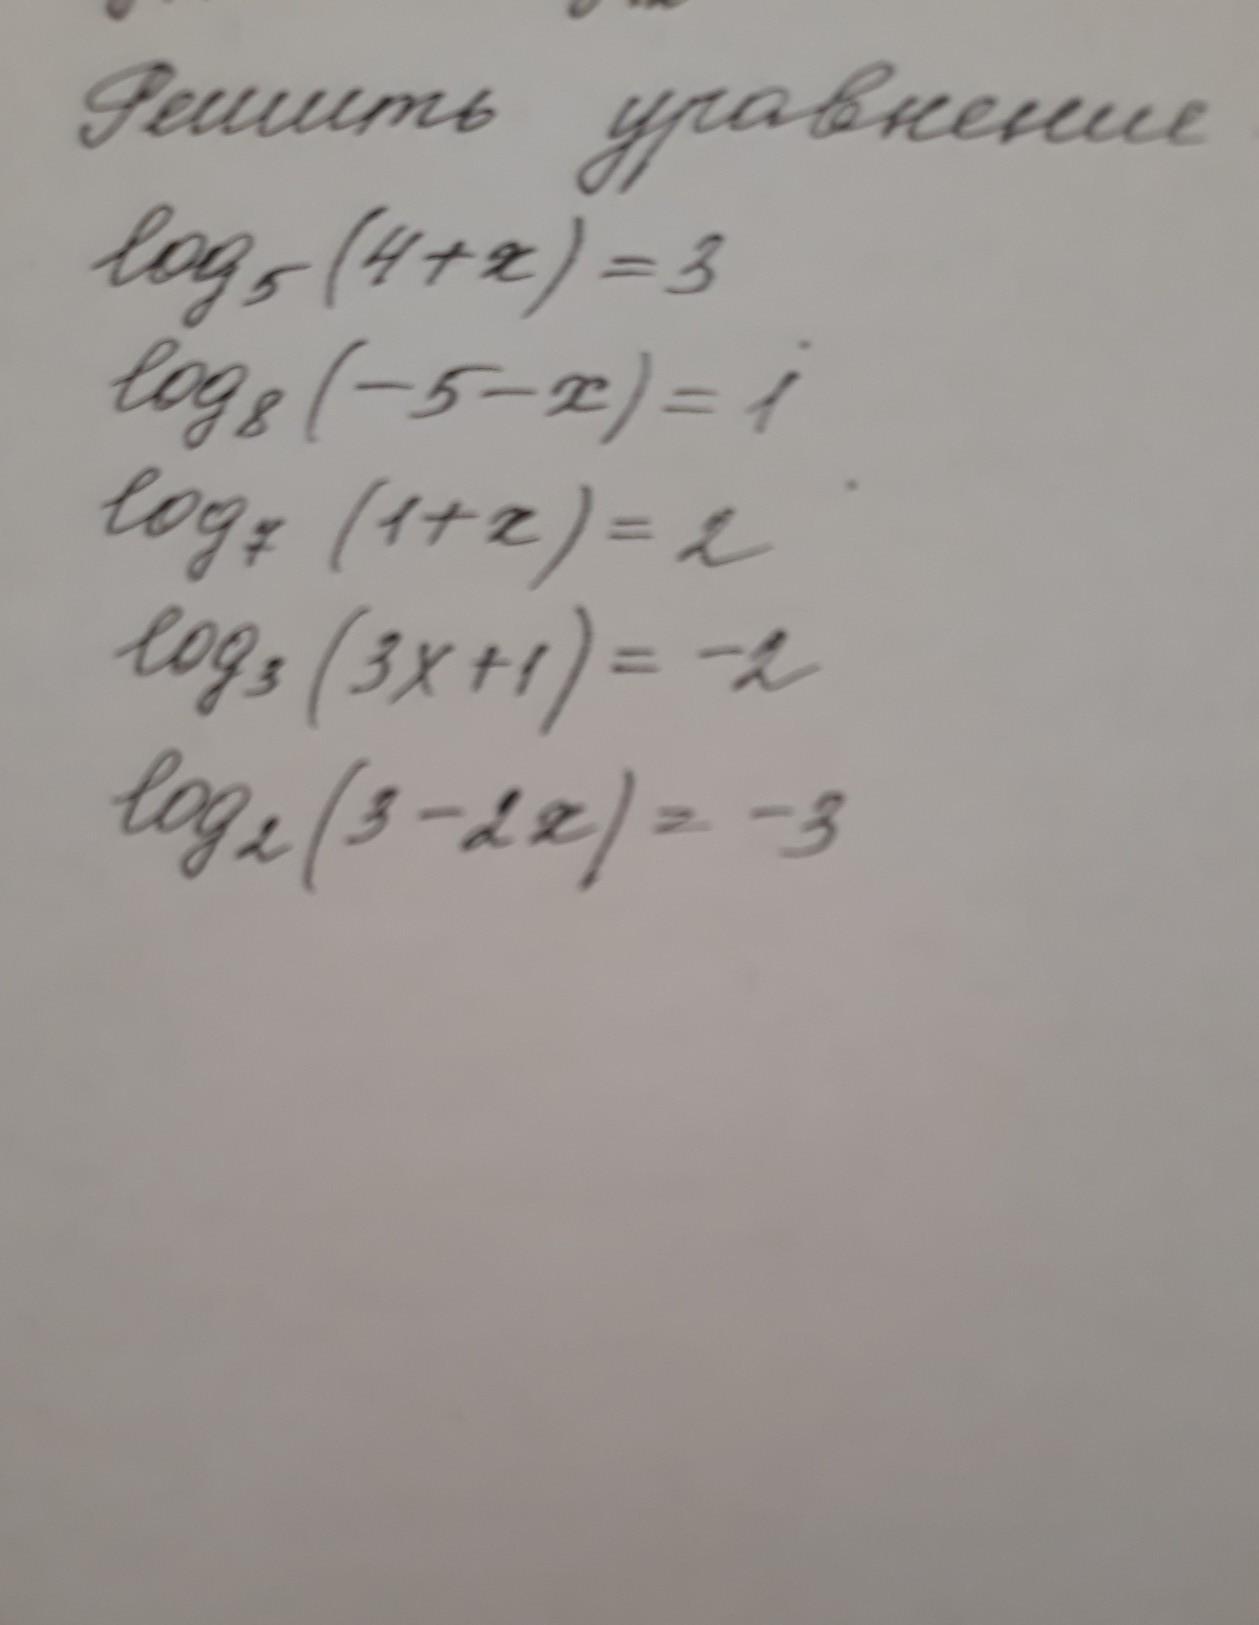 Решить уравнение
log₅(4+x)=3
log₈(-5-x)=1
log₇(1+x)=2
log₃(3x+1)=-2
log₂(3-2x)=-3